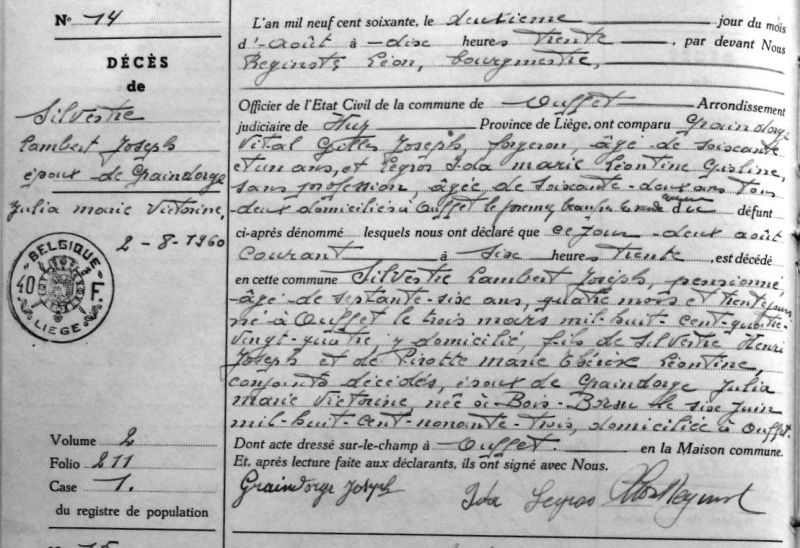 N° 14
DÉCÈS
de
Silvestre
Lambert Joseph
époux de Graindorge
Julia Marie Victorine
2-8-1960
BELGIQUE
406 F.
LIEGE
Volume 2
Folio 211
Case 1.
du registre de population
L'an mil neuf cent soixante, le deuxième jour du mois
d'août à dix heures trente, par devant Nous
Reginster Léon, bourgmestre,
Officier de l'Etat Civil de la commune de Ouffet Arrondissement
judiciaire de Huy Province de Liége, ont comparu Graindorge
Vital Gilles Joseph, forgeron, âgé de soixante
et un ans, et Legros Ida Marie Léontine Gisline,
sans profession, âgée de soixante-deux ans tous
deux domiciliés à Ouffet le premier beau-frère du défunt
ci-après dénommé lesquels nous ont déclaré que ce jour deux août
courant à six heures trente, est décédé
en cette commune Silvestre Lambert Joseph, pensionné
âgé de septante-six ans, quatre mois et trente jours
né à Ouffet le trois mars mil-huit-cent-quatre-
vingt-quatre y domicilié, fils de Silvestre Henri
Joseph et de Pirotte Marie Thérèse Léontine,
conjoints décédés, époux de Graindorge Julia
Marie Victorine, née à Bois-Borsu le six juin
mil-huit-cent-nonante-trois, domiciliée à Ouffet.
Dont acte dressé sur-le-champ à Ouffet. en la Maison commune.
Et, après lecture faite aux déclarants, ils ont signé avec Nous.
Graindorge Joseph Ida Legros
N° 15